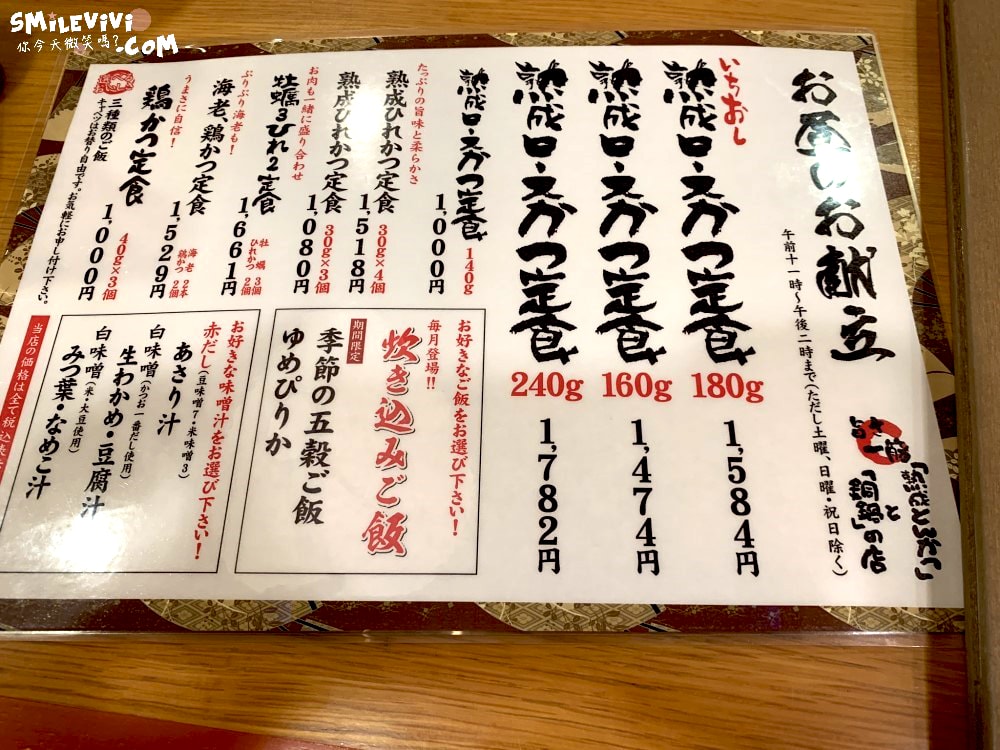 SMiLEViVi
你今天微笑嗎?
.COM
お昼のお献立
午前十一時～午後二時まで(ただし土曜、日曜・祝日除く)
旨さ一筋
「熟成とんかつ」
と
「銅鍋」の店
いちおし
熟成ロースかつ定食
180g
1,584円
熟成ロースかつ定食
160g
1,474円
熟成ロースかつ定食
240g
1,782円
熟成ロースかつ定食
140g
1,000円
たっぷりの旨味と柔らかさ
熟成ひれかつ定食
30g×4個
1,518円
熟成ひれかつ定食
30g×3個
1,080円
お肉も一緒に盛り合わせ
牡蠣3ひれ2定食
牡蠣 3個
ひれかつ 2個
1,661円
ぷりぷり海老も!
海老、鶏かつ定食
海老 2本
鶏かつ 2個
1,529円
うまさに自信!
鶏かつ定食
40g×3個
1,000円
三種類のご飯
キャベツはお替り自由です。お気軽にお申し付け下さい。
お好きなご飯をお選び下さい!
毎月登場!!
炊き込みご飯
期間限定
季節の五穀ご飯
ゆめぴりか
お好きな味噌汁をお選び下さい!
赤だし(豆味噌7・米味噌3)
あさり汁
白味噌(かつお一番だし使用)
生わかめ・豆腐汁
白味噌(米・大豆使用)
みつ葉・なめこ汁
当店の価格は全て税込表